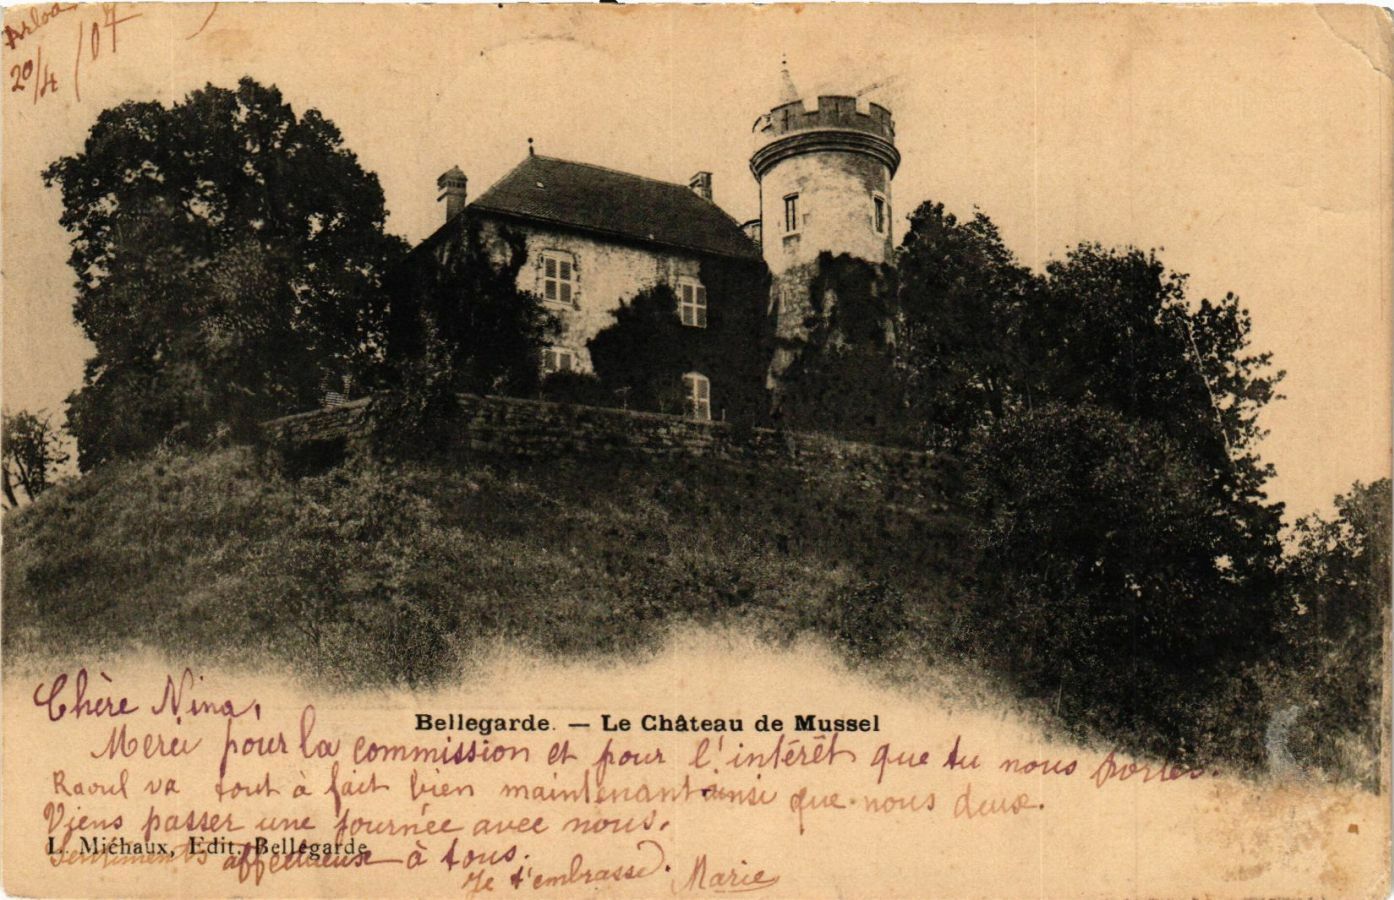 Arlod
20/4/07
Bellegarde. — Le Château de Mussel
Chère Nina,
Merci pour la commission et pour l'intérêt que tu nous portes.
Raoul va tout à fait bien maintenant ainsi que nous deux.
Viens passer une journée avec nous.
L. Michaux, Edit. Bellegarde
Sentiments affectueux à tous.
Je t'embrasse. Marie